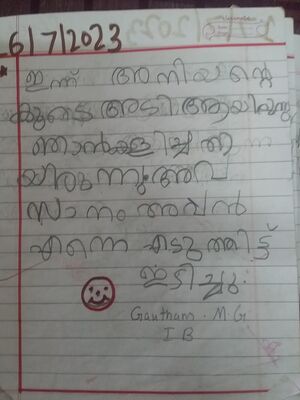 6/7/2023
ഇന്ന് അനിയന്റെ
കൂടെ അടി ആയിരുന്നു
ഞാൻ കളിച്ച
യിരുന്നു. അവ
സാനം അവൻ
എന്നെ എടുത്തിട്ട്
ഇടിച്ചു.
Gautham. M. G
I B